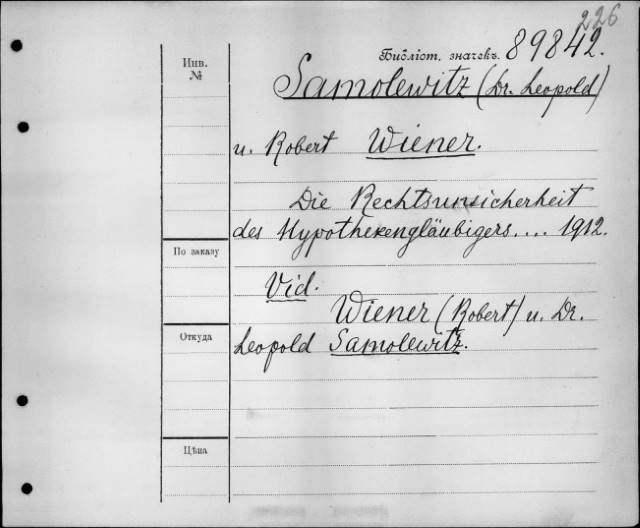 226
Библіот. значекъ. 89842.
Инв.
№
Samolewitz (Dr. Leopold)
u. Robert Wiener.
Die Rechtsunsicherheit
des Hypothekengläubigers.... 1912.
По заказу
Vid.
Wiener (Robert) u. Dr.
Откуда
Leopold Samolewitz.
Цѣна